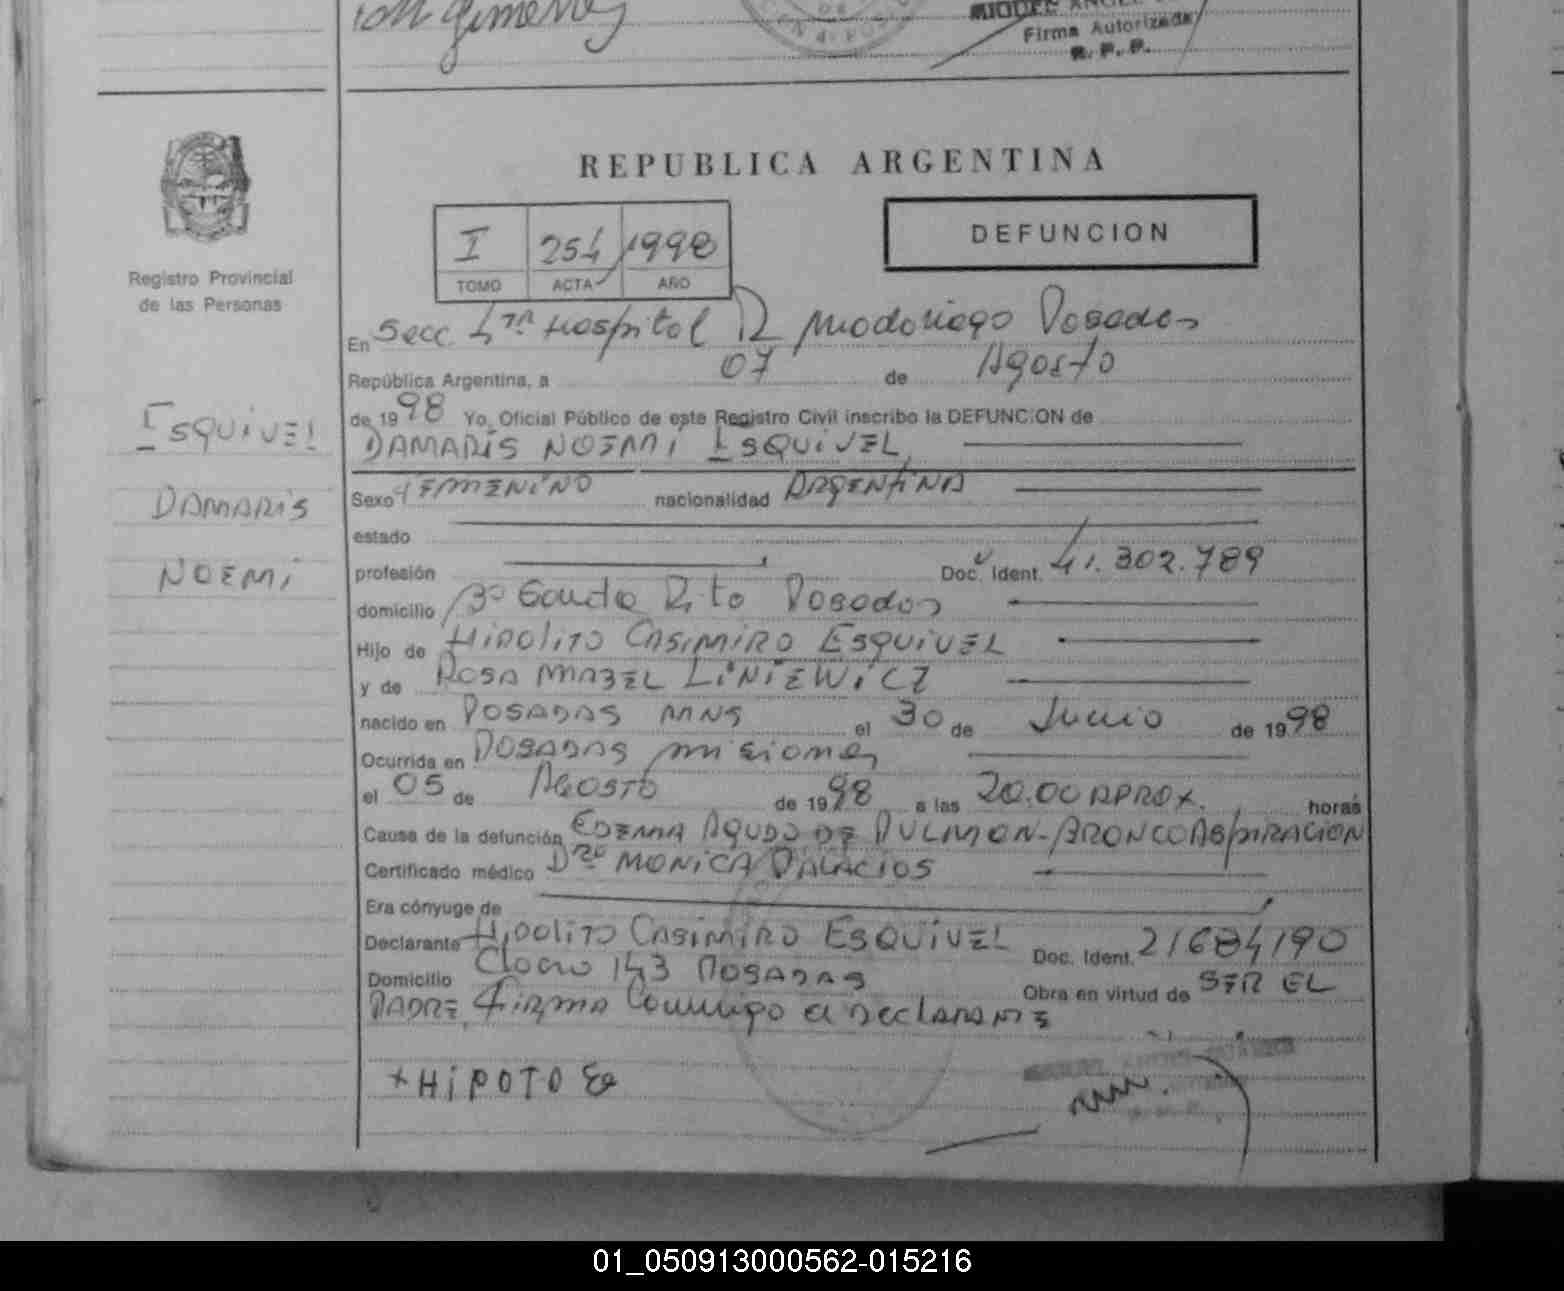 Gimenez
MIGUEL ANGEL
Firma Autorizada
R. P. P.
REPUBLICA ARGENTINA
I 254 1998
TOMO ACTA AÑO
DEFUNCION
Registro Provincial
de las Personas
En Secc. 4ta Hospital Dr Madariaga Posadas
República Argentina, a 07 de Agosto
de 1998 Yo, Oficial Público de este Registro Civil inscribo la DEFUNCION de
DAMARIS NOEMI ESQUIVEL
ESQUIVEL
DAMARIS
NOEMI
Sexo FEMENINO nacionalidad ARGENTINA
estado
profesión Doc. Ident. 41.302.789
domicilio Bº Santa Rita Posadas
Hijo de HIPOLITO CASIMIRO ESQUIVEL
y de ROSA MABEL LINIEWICZ
nacido en POSADAS MNS el 30 de Junio de 1998
Ocurrida en POSADAS misiones
el 05 de AGOSTO de 1998 a las 20.00 APROX. horas
Causa de la defunción EDEMA AGUDO DE PULMON-BRONCOASPIRACION
Certificado médico Dra MONICA PALACIOS
Era cónyuge de
Declarante HIPOLITO CASIMIRO ESQUIVEL Doc. Ident. 21684190
Domicilio 143 POSADAS Obra en virtud de SER EL
PADRE, FIRMA Conmigo el DECLARANTE
+HIPOTO
01_050913000562-015216